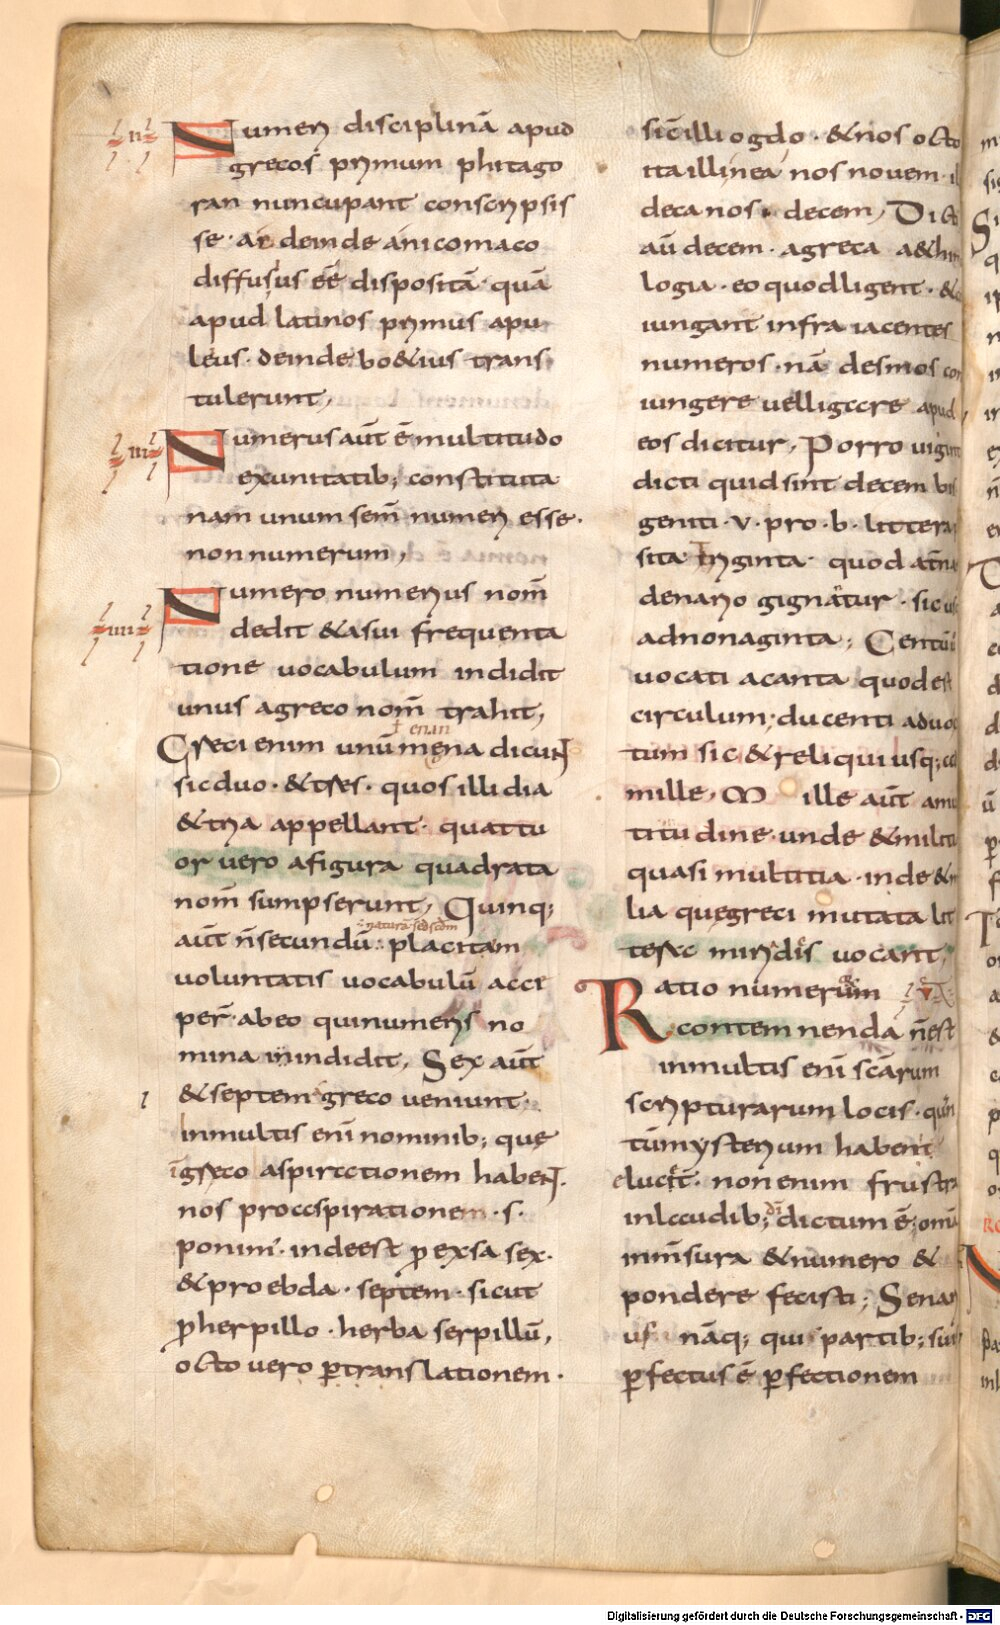 ·II· Numeri disciplinā apud
grecos primum phitago
ran nuncupant conscripsis
se· ac deinde anicomaco
diffusus eē dispositā· quā
apud latinos primus apu
leus· deinde bo&ius trans
tulerunt,
·III· Numerus aūt ē multitudo
ex unitatib; constituta
nam unum sem̄ numeri esse·
non numerum,
·IIII· Numero numerius nom̄
dedit & a sui frequenta
tione uocabulum indidit
unus a greco nom̄ trahit,
Greci enim unū mena dicunt
sic duo· & tres· quos illi dia
& tria appellant· quattu
or vero a figura quadrata
nom̄ sumpserunt, Quinq;
naturā sed scdm
aūt n̄ secundū placitam
voluntatis vocabulū acce
per̄· ab eo qui numeris no
mina inindidit, Sex aūt
& septem greco veniunt·
in multis eni nominib; quę
ī greco aspirationem habent·
nos pro aspirationem·s·
ponim̄· inde est p exsa sex·
& pro ebda· septem· sicut
p herpillo· herba serpillū,
octo vero p translationem·
sic illi ogdo· & nos octo
ita illi nea nos novem·
deca nos· decem, Dicti
aū decem· a greca a&him
logia· eo quod ligent· &
iungant infra iacentes
numeros· nā desmos con
iungere uel ligare apud
eos dicitur, Porro vigin
dicti quid sint decem bis
geniti·v·pro·b·littera
sita Triginta· quod a tn̄a
denario gignatur· sic us
ad nonaginta; Centū
vocati a canta quod est
circulum; ducenti a duo
tum sic & reliqui usq;
mille, Mille aūt a mu
titudine unde & militi
quasi multitia· inde &
lia quę greci mutata lit
tera miriadis vocant,
V Ratio numerum
contemnenda n̄ est
in multis enī scārum
scripturarum locis· quan
tū mysterium habent
eluc&· non enim frustra
in laudib; dī dictum ē; omīa
in m̄sura & numero &
pondere fecisti; Senar
us nāq; qui partib; sui
pfectus ē pfectionem
Digitalisierung gefördert durch die Deutsche Forschungsgemeinschaft - DFG